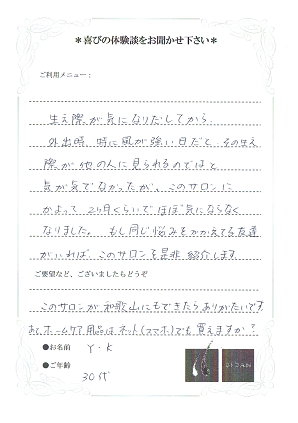 ＊喜びの体験談をお聞かせ下さい＊
ご利用メニュー：
生え際が気になりだしてから
外出時、特に風が強い日だと その生え
際が他の人に見られるのではと
気が気でなかったが、このサロンに
かよって2ヶ月くらいでほぼ気にならなく
なりました。もし同じ悩みをかかえてる友達
がいれば、このサロンを是非紹介します。
ご要望など、ございましたらどうぞ
このサロンが和歌山にもできたらありがたいです
あと、ホームケア用品はネット(スマホ)でも買えますか？
●お名前 Y・K
●ご年齢 30代